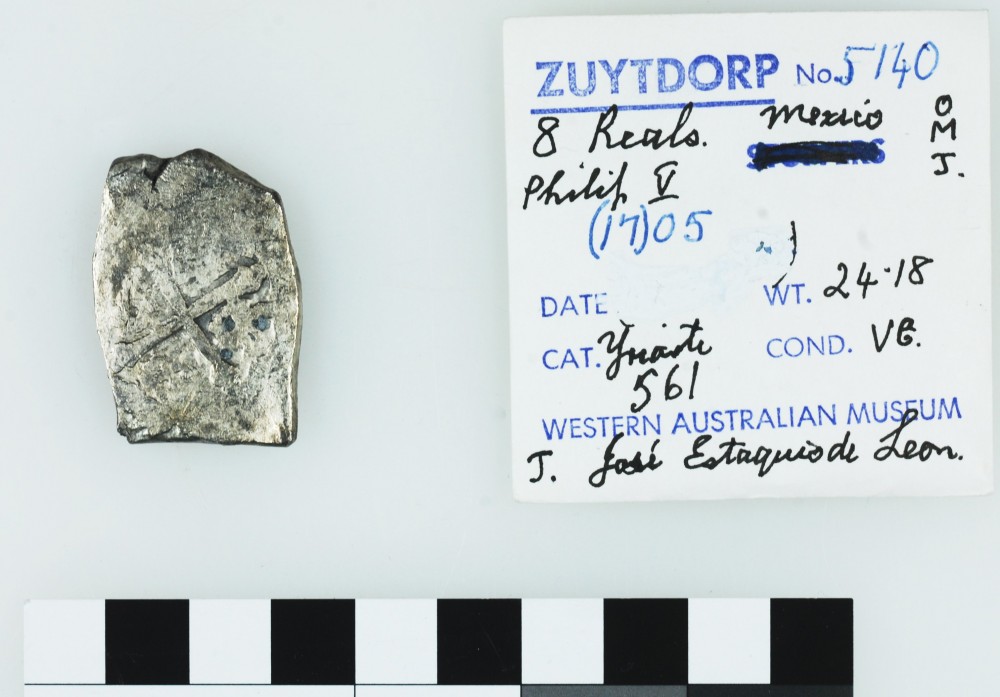 ZUYTDORP No. 5140
8 Reals. Mexico
O
M
J.
Philip V
(17)05
DATE WT. 24.18
CAT. Yriarte COND. VG.
561
WESTERN AUSTRALIAN MUSEUM
J. José Estaquio de Leon.